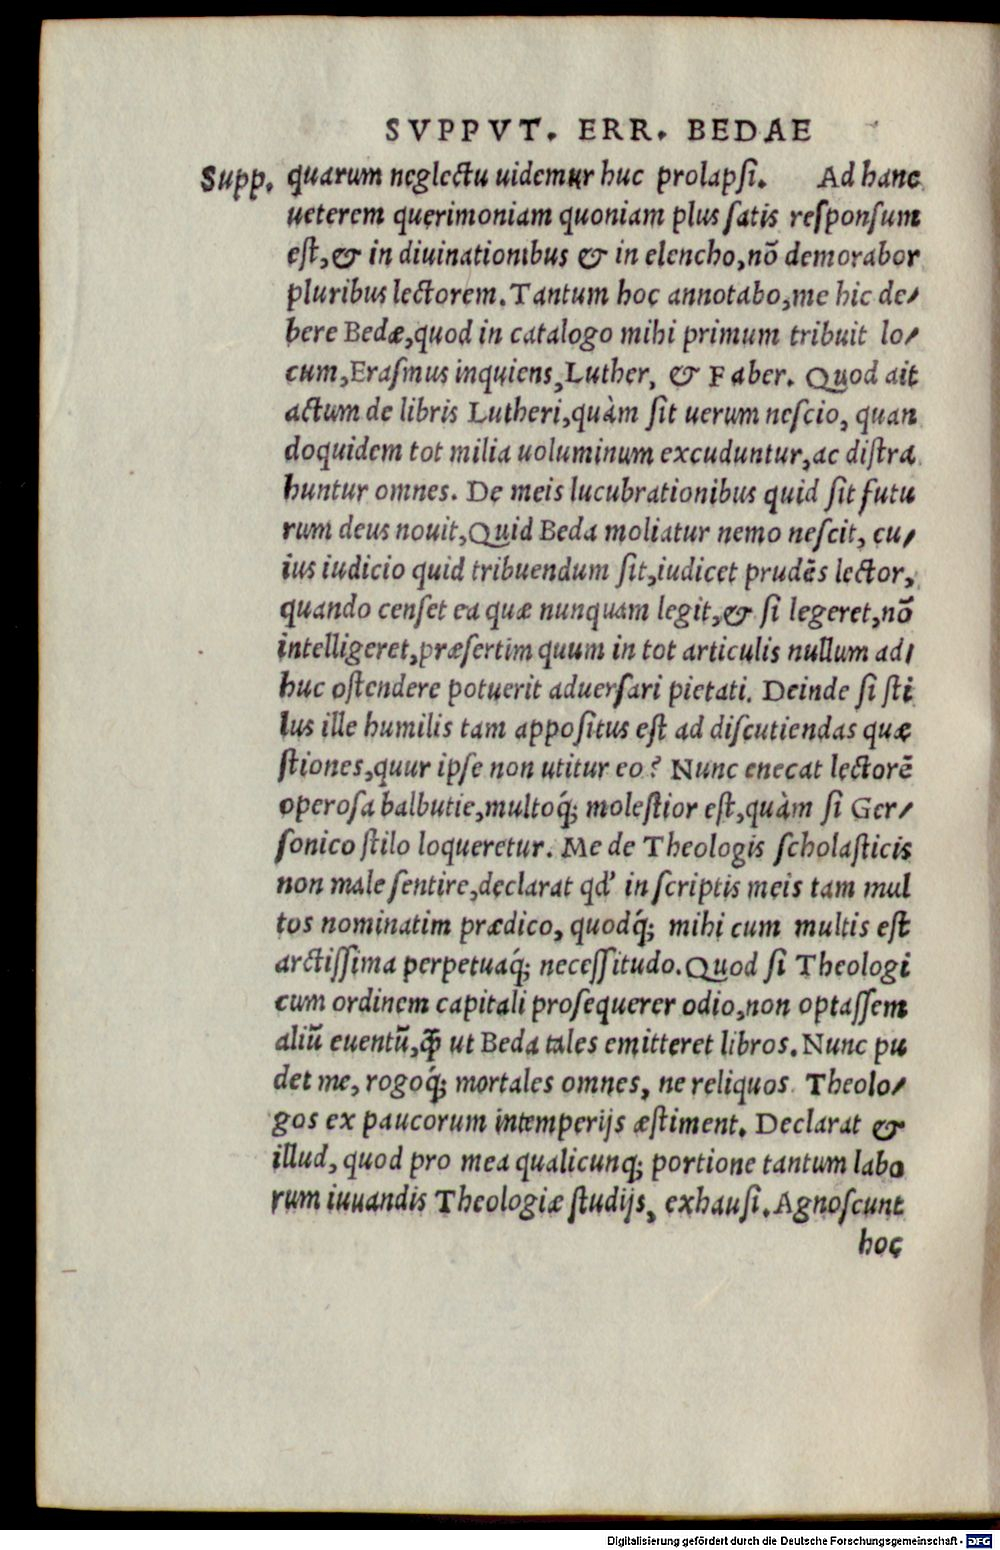 SVPPVT. ERR. BEDAE
Supp. quarum neglectu uidemur huc prolapsi. Ad hanc
ueterem querimoniam quoniam plus satis responsum
est, & in diuinationibus & in elencho, nõ demorabor
pluribus lectorem. Tantum hoc annotabo, me hic de/
bere Bedæ, quod in catalogo mihi primum tribuit lo/
cum, Erasmus inquiens, Luther, & Faber. Quod ait
actum de libris Lutheri, quàm sit uerum nescio, quan
doquidem tot milia uoluminum excuduntur, ac distra
huntur omnes. De meis lucubrationibus quid sit futu
rum deus nouit, Quid Beda moliatur nemo nescit, cu/
ius iudicio quid tribuendum sit, iudicet prudẽs lector,
quando censet ea quæ nunquam legit, & si legeret, nõ
intelligeret, præsertim quum in tot articulis nullum ad/
huc ostendere potuerit aduersari pietati. Deinde si sti
lus ille humilis tam appositus est ad discutiendas quæ
stiones, quur ipse non utitur eo? Nunc enecat lectorẽ
operosa balbutie, multoq́; molestior est, quàm si Ger/
sonico stilo loqueretur. Me de Theologis scholasticis
non male sentire, declarat qd' in scriptis meis tam mul
tos nominatim prædico, quodq́; mihi cum multis est
arctissima perpetuaq́; necessitudo. Quod si Theologi
cum ordinem capitali prosequerer odio, non optassem
aliũ euentũ, ꝙ̃ ut Beda tales emitteret libros. Nunc pu
det me, rogoq́; mortales omnes, ne reliquos Theolo/
gos ex paucorum intemperijs æstiment. Declarat &
illud, quod pro mea qualicunq; portione tantum labo
rum iuuandis Theologiæ studijs, exhausi. Agnoscunt
hoc
Digitalisierung gefördert durch die Deutsche Forschungsgemeinschaft - DFG